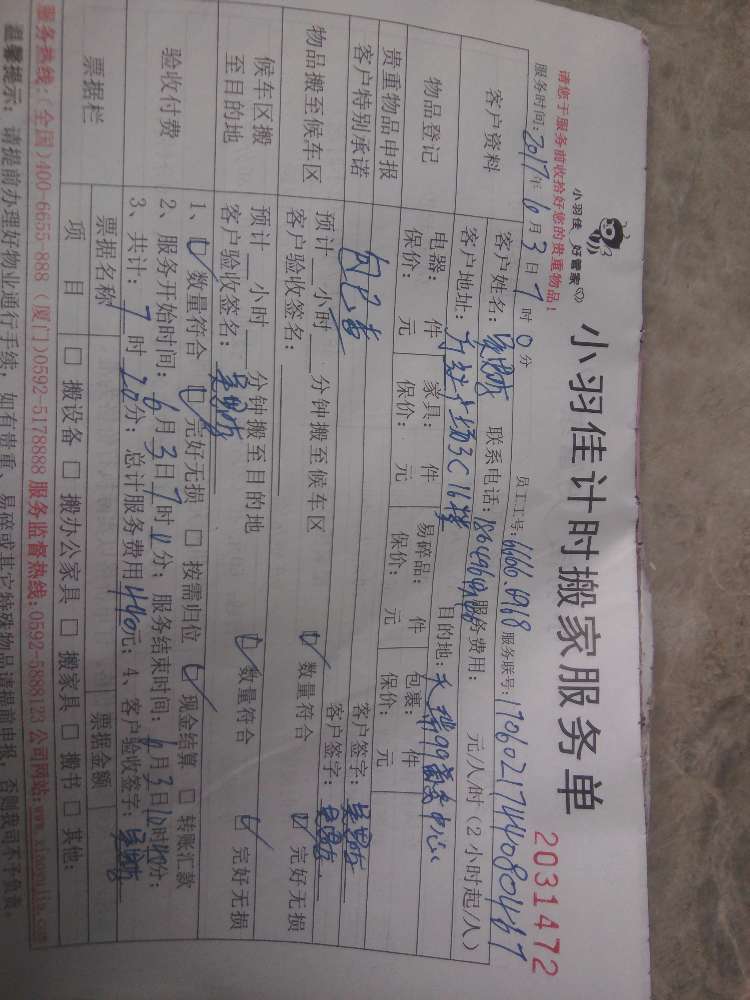 小羽佳 好管家
小羽佳计时搬家服务单
2031472
请您于服务前收拾好您的贵重物品!
服务时间:2017年6月3日7时0分 员工工号:6666.6968 服务联号:
客户资料
客户姓名: 联系电话: 服务费用: 元/人/时(2小时起/人)
客户地址: 目的地:
物品登记
电器: 件 家具: 件 易碎品: 件 包裹: 件
保价: 元 保价: 元 保价: 元 保价: 元
贵重物品申报
客户特别承诺
客户签字:
物品搬至候车区
预计 小时 分钟搬至候车区 数量符合 完好无损
客户验收签名:
客户签字:
候车区搬
至目的地
预计 小时 分钟搬至目的地 数量符合 完好无损
客户验收签名:
验收付费
1、 数量符合 完好无损 □ 按需归位 现金结算 □ 转账汇款
2、服务开始时间:6月3日7时0分;服务结束时间:6月3日 时 分;
3、共计:7时20分;总计服务费用440元;4、客户验收签字:
票据栏
票据名称 票据金额
项目 □ 搬设备 □ 搬办公家具 □ 搬家具 □ 搬书 □ 其他:
服务热线:(全国)400-6655-888 (厦门)0592-5178888 服务监督热线:0592-5888123 公司网站:www.xiaoyujia.cn
温馨提示: 请提前办理好物业通行手续,如有贵重、易碎或其它特殊物品请提前申报,否则我司不予负责。